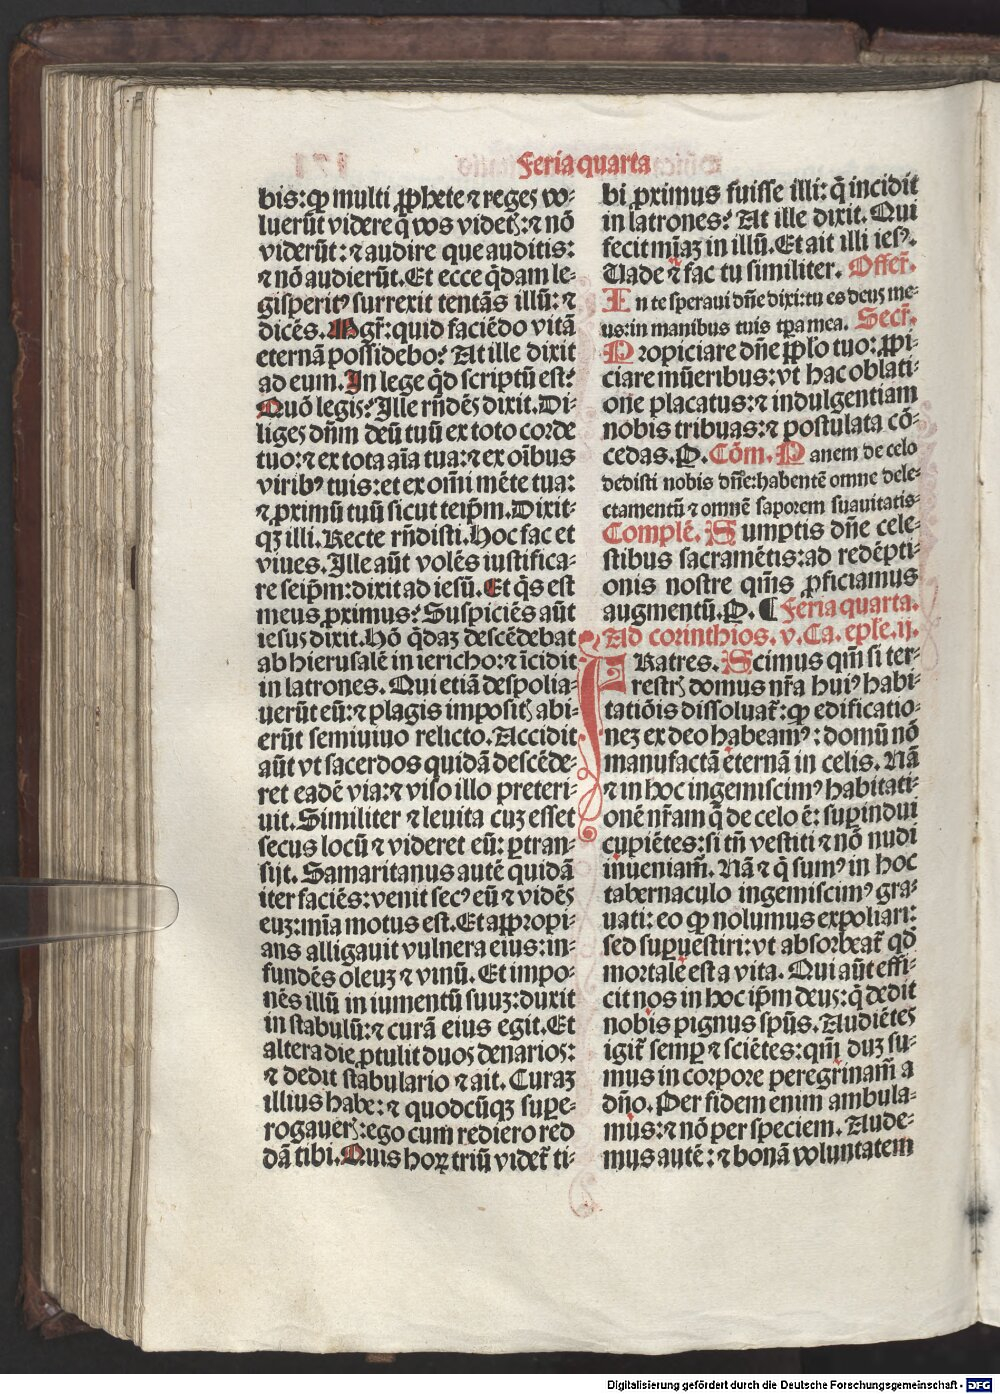 Feria quarta
bis:ꝙ multi ꝓphete ⁊ reges vo⸗
luerũt videre q̃ vos videtꝭ:⁊ nõ
viderũt:⁊ audire que auditis:
⁊ nõ audierũt. Et ecce q̃dam le⸗
gisperitꝰ surrexit tentãs illũ:⁊
dicẽs. Mgr̃:quid faciẽdo vitã
eternã possidebo? At ille dixit
ad eum. In lege q̃d scriptũ est?
Quõ legis? Ille rñdẽs dixit. Di⸗
liges dñm deũ tuũ ex toto corde
tuo:⁊ ex tota aĩa tua:⁊ ex oĩbus
viribꝰ tuis:et ex om̃i mẽte tua:
⁊ ꝓximũ tuũ sicut teip̃m. Dixit⸗
qꝫ illi. Recte rñdisti. Hoc fac et
viues. Ille aũt volẽs iustifica⸗
re seip̃m:dixit ad iesũ. Et q̃s est
meus ꝓximus? Suspiciẽs aũt
iesus dixit. Hõ q̃daꝫ descẽdebat
ab hierusalẽ in iericho:⁊ ĩcidit
in latrones. Qui etiã despolia⸗
uerũt eũ:⁊ plagis impositꝭ abi⸗
erũt semiuiuo relicto. Accidit
aũt vt sacerdos quidã descẽde⸗
ret eadẽ via:⁊ viso illo preteri⸗
uit. Similiter ⁊ leuita cuꝫ esset
secus locũ ⁊ videret eũ: ꝑtran⸗
sijt. Samaritanus autẽ quidã
iter faciẽs:venit secꝰ eũ ⁊ vidẽs
euꝫ:mĩa motus est. Et appropi⸗
ans alligauit vulnera eius:in⸗
fundẽs oleuꝫ ⁊ vinũ. Et impo⸗
nẽs illũ in iumentũ suuꝫ:duxit
in stabulũ:⁊ curã eius egit. Et
altera die ꝓtulit duos denarios:
⁊ dedit stabulario ⁊ ait. Curaꝫ
illius habe:⁊ quodcũqꝫ supe⸗
rogauerꝭ:ego cum rediero red
dã tibi. Quis hoꝝ triũ videt̃ ti⸗
bi ꝓximus fuisse illi:q̃ incidit
in latrones? At ille dixit. Qui
fecit mĩaꝫ in illũ. Et ait illi iesꝰ.
Uade ⁊ fac tu similiter. Offer̃.
In te speraui dñe dixi:tu es deus me⸗
us:in manibus tuis tꝑa mea. Secr̃.
Propiciare dñe pp̃lo tuo:ꝓpi⸗
ciare mũeribus:vt hac oblati⸗
one placatus:⁊ indulgentiam
nobis tribuas:⁊ postulata cõ⸗
cedas. P. Cõm. Panem de celo
dedisti nobis dñe:habentẽ omne dele⸗
ctamentũ ⁊ omnẽ saporem suauitatis⸗
Complẽ. Sumptis dñe cele⸗
stibus sacramẽtis:ad redẽpti⸗
onis nostre qm̃s ꝓficiamus
augmentũ. P. ¶ Feria quarta.
Ad corinthios. v. Ca. ep̃le. ij.
FRatres. Scimus qm̃ si ter⸗
restrꝭ domus nr̃a huiꝰ habi⸗
tatiõis dissoluat̃:ꝙ edificatio⸗
neꝫ ex deo habeamꝰ: domũ nõ
manufactã eternã in celis. Nã
⁊ in hoc ingemiscimꝰ habitati⸗
onẽ nr̃am q̃ de celo ẽ: suꝑindui
cupiẽtes:si tñ vestiti ⁊ nõ nudi
inueniam̃. Nã ⁊ q̃ sumꝰ in hoc
tabernaculo ingemiscimꝰ gra⸗
uati: eo ꝙ nolumus expoliari:
sed suꝑuestiri:vt absorbeat̃ qd̃
mortale est a vita. Qui aũt effi⸗
cit nos in hoc ip̃m deus:q̃ dedit
nobis pignus sp̃us. Audẽtes
igit̃ semꝑ ⁊ sciẽtes:qm̃ duꝫ su⸗
mus in corpore peregrinam̃ a
dño. Per fidem enim ambula⸗
mus:⁊ nõ per speciem. Aude⸗
mus autẽ:⁊ bonã voluntatem
Digitalisierung gefördert durch die Deutsche Forschungsgemeinschaft - DFG